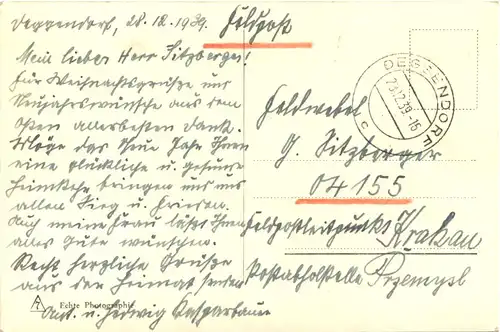 Deggendorf, 28.12.1939. Feldpost
Mein lieber Herr Sitzberger!
Für Weihnachtsgrüsse und
Neujahrswünsche aus dem
Osten allerbesten Dank.
Möge das neue Jahr Ihnen
eine glückliche u. gesunde
Heimkehr bringen und uns
allen Sieg u. Frieden.
Auch meine Frau lässt Ihnen
alles Gute wünschen.
Recht herzliche Grüsse
aus der Heimat senden
Ant. u. Hedwig Kasparbauer
Echte Photographie
DEGGENDORF
.12.39.-16
c
Feldwebel
G. Sitzberger
04155
Feldpostleitpunkt Krakau
Postabholstelle Przemysl